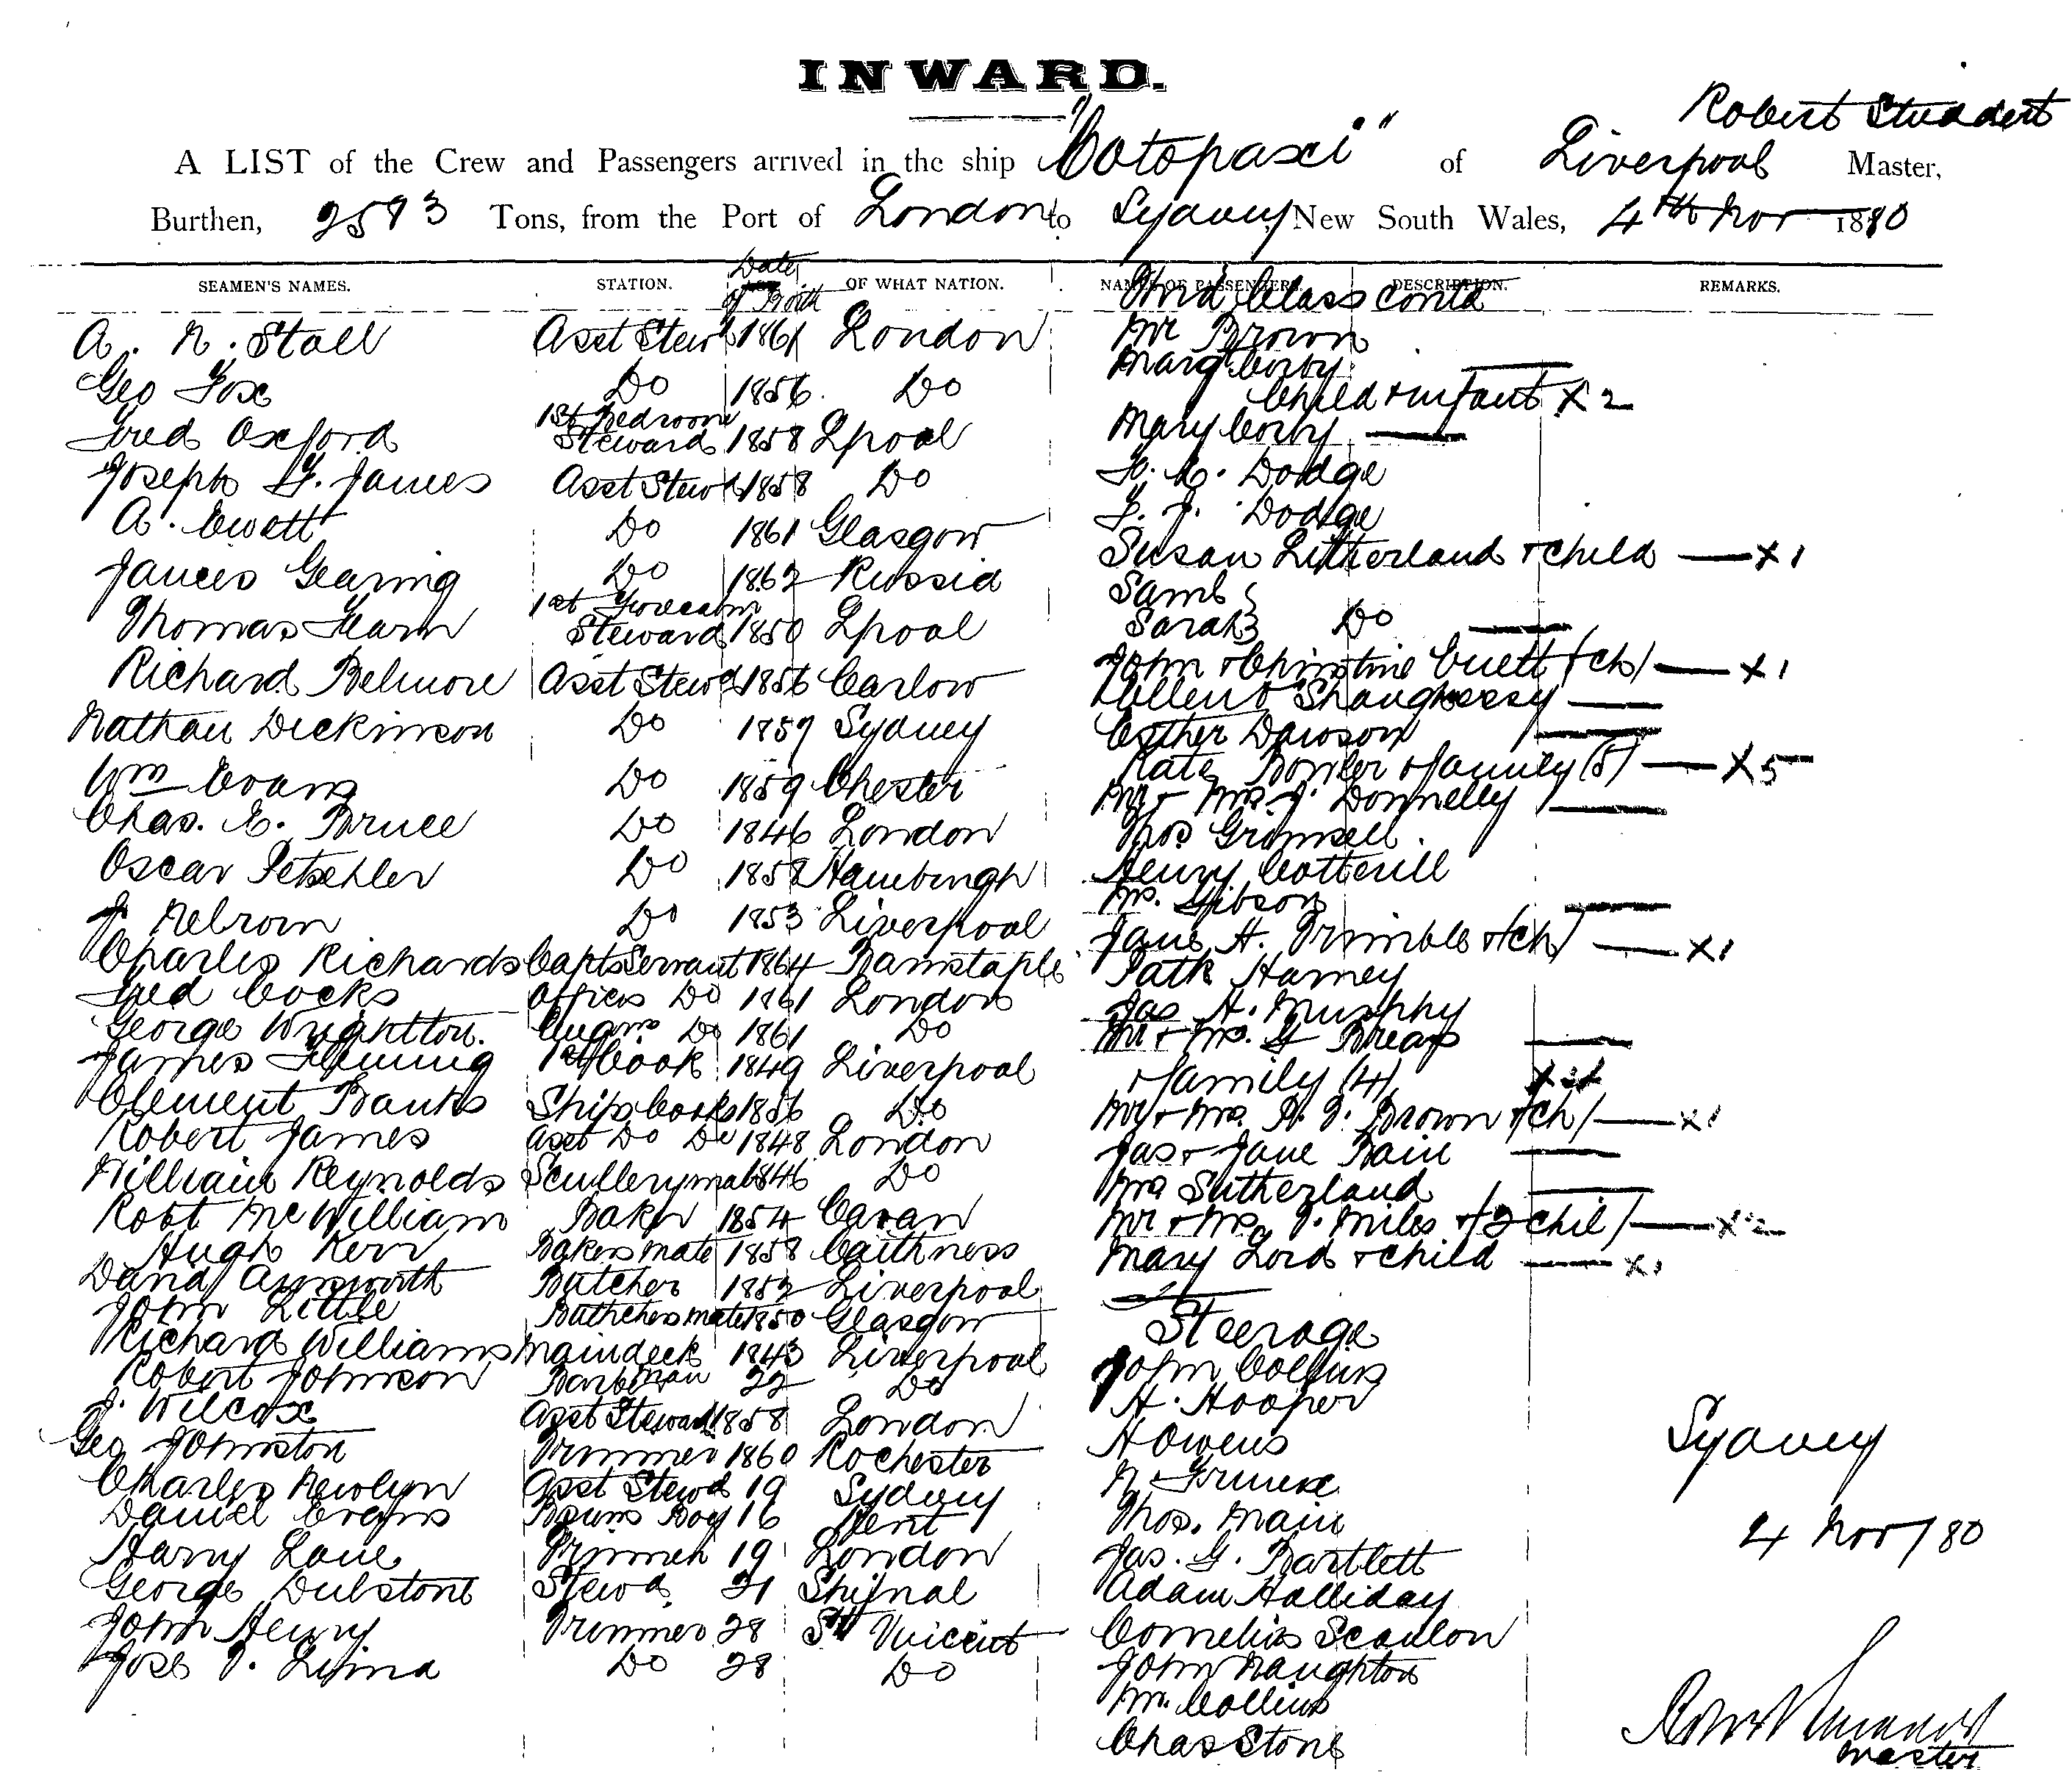 INWARD.
Robert Studdert
A LIST of the Crew and Passengers arrived in the ship "Cotopaxi" of Liverpool Master,
Burthen, 2583 Tons, from the Port of London to Sydney, New South Wales, 4th Nov 1880
SEAMEN'S NAMES. STATION. Date of Birth OF WHAT NATION. NAMES OF PASSENGERS. DESCRIPTION. REMARKS.
Third Class contd
A. N. Stall Asst Stewd 1861 London
Geo Fox Do 1856 Do
Fred Oxford 1st Bedroom Steward 1858 Lpool
Joseph F. James Asst Stewd 1858 Do
A. Ewett Do 1861 Glasgow
James Gearing Do 1862 Russia
Thomas Hearn 1st Steward 1850 Lpool
Richard Belmore Asst Stewd 1856 Carlow
Nathan Dickinson Do 1859 Sydney
Wm Evans Do 1859 Chester
Chas. E. Bruce Do 1846 London
Oscar Do 1858 Hamburgh
J. Do 1853 Liverpool
Charles Richards Capts Servant 1864 Barnstaple
Fred Cocks Officers Do 1861 London
George Wrightton. Do 1861 Do
James Fleming 1st Cook 1849 Liverpool
Clement Banks Ships Cook 1856 Do
Robert James Asst Do Do 1848 London
William Reynolds Sculleryman 1846 Do
Robt McWilliam Baker 1854 Cavan
Hugh Kerr Bakers mate 1858 Caithness
David Ainsworth Butcher 1852 Liverpool
John Little Buthchers mate 1850 Glasgow
Richard Williams Maindeck 1843 Liverpool
Robert Johnson Barman 22 Do
J. Wilcox Asst Steward 1858 London
Geo Johnston Trimmer 1860 Rochester
Charles Newlyn Asst Stewd 19 Sydney
Daniel Evans Bosuns Boy 16 Kent
Harry Lane Trimmer 19 London
George Dulstone Stewd 21 Shifnal
John Henry Trimmer 28 St Vincent
Jose D. Lima Do 28 Do
Mr Brown
Margt Corby
Child & infant X 2
Mary Corby
Dodge
F. J. Dodge
Susan Litherland & child X 1
Saml
Sarah Do
John & Christine Cuett (ch) X 1
Ellen O'Shaughnessy
Esther Dawson
Kate Bowler & family (5) X 5
Mr & Mrs J. Donnelly
Thos Grimsell
Henry Cotterill
Mr. Gibson
Jane H. Trimble & (ch) X 1
Patk Harney
Jas H. Murphy
Mr & Mrs. G
& family (4) X 4
Mr & Mrs. Brown & (ch) X 1
Jas & Jane Bain
Mrs Sutherland
Mr & Mrs J. Miles & (2 chil) X 2
Mary Lord & child X 1
Steerage
John Collins
H. Hooper
H Owens
Thos. Main
Jas. G. Bartlett
Adam Halliday
Cornelius Scanlon
John Naughton
Mr. Collins
Chas Stone
Sydney
4 Nov / 80
Robert Studdert
Master